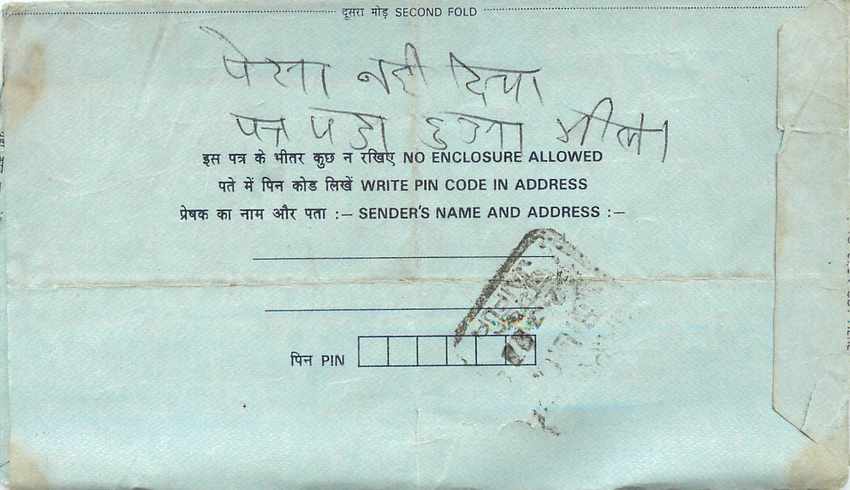 दूसरा मोड़ SECOND FOLD
पेसा नही दिया
पत्र पडा हुआ मीला
इस पत्र के भीतर कुछ न रखिए NO ENCLOSURE ALLOWED
पते में पिन कोड लिखें WRITE PIN CODE IN ADDRESS
प्रेषक का नाम और पता :— SENDER'S NAME AND ADDRESS :—
पिन PIN